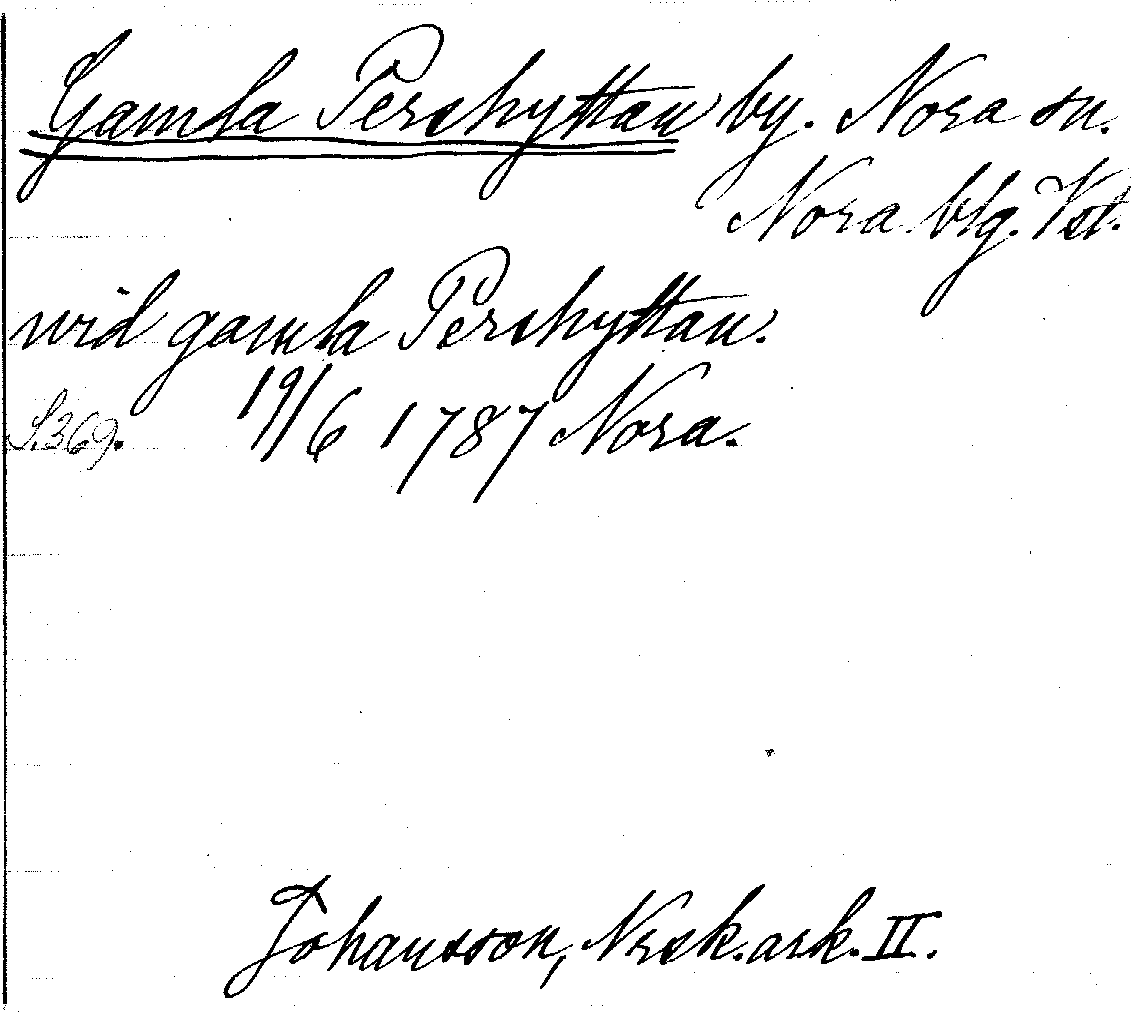 Gamla Pershyttan by. Nora sn.
Nora blg. Vstm.
wid gamla Pershyttan.
S.369. 19/6 1787 Nora.
Johansson, Nrsk.ark. II.